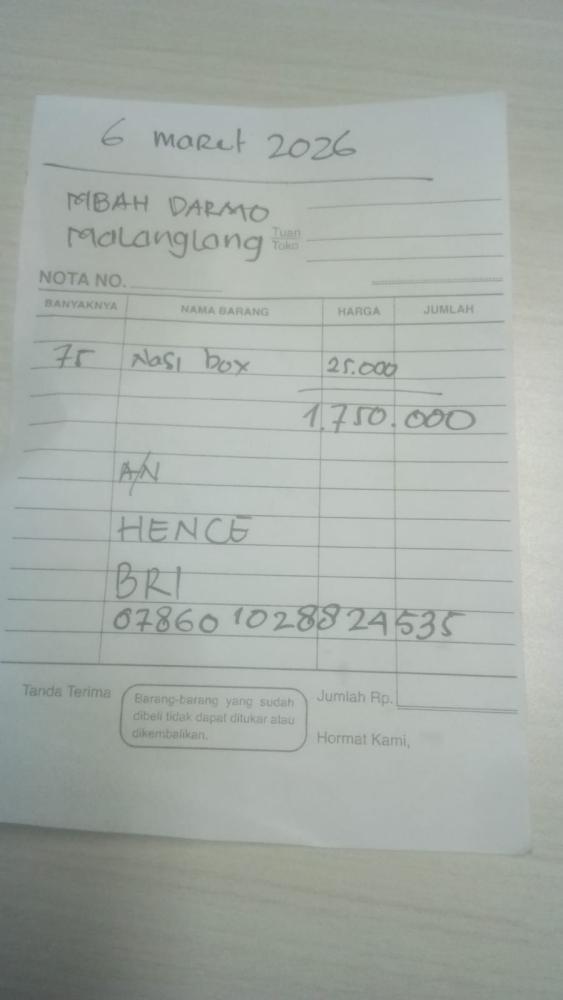 6 maret 2026
MBAH DARMO
Malanglang
Tuan
Toko
NOTA NO.
BANYAKNYA NAMA BARANG HARGA JUMLAH
75 Nasi box 25.000
1.750.000
A/N
HENCE
BRI
078601028824535
Tanda Terima
Barang-barang yang sudah
dibeli tidak dapat ditukar atau
dikembalikan.
Jumlah Rp.
Hormat Kami,